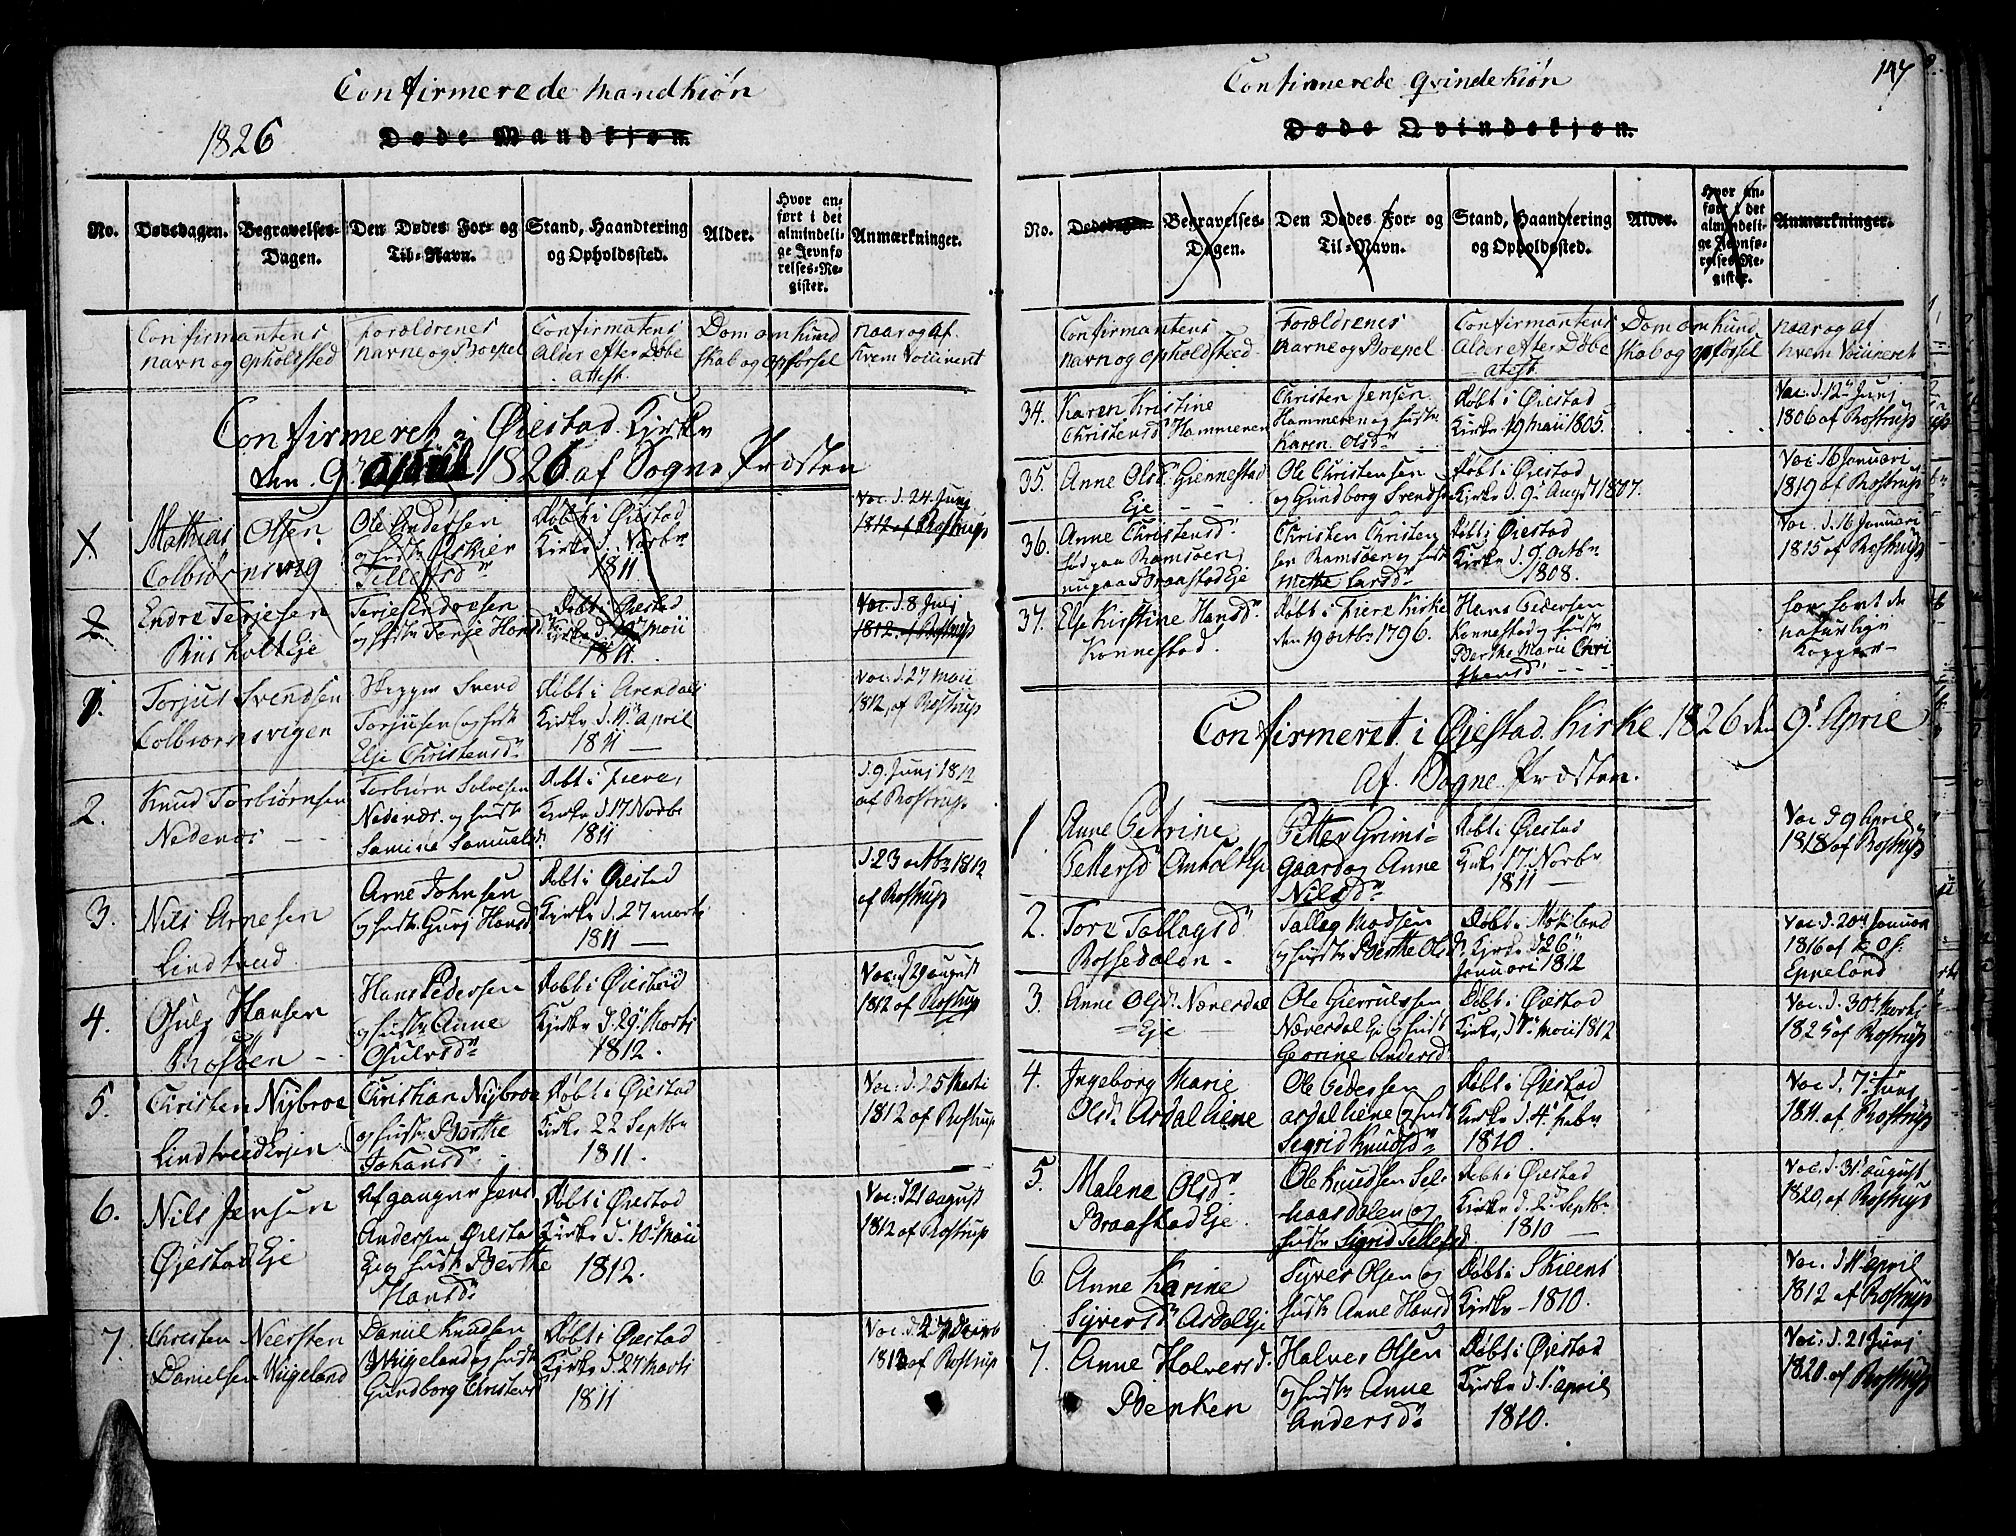 Confirmerede Mandkiøn
1826
Døde Mandkjøn.
No.
Dødsdagen.
Begravelses-
Dagen.
Den Dødes For- og
Til-Navn.
Stand, Haandtering
og Opholdssted.
Alder.
Hvor an-
ført i det
almindeli-
ge Jevnfø-
relses-Re-
gister.
Anmærkninger.
Confirmantens
navn og opholdsted
Forældrenes
navne og Boepel
Confirmatens
alder efter Døbe
attest.
Dom om kund
skab og opførsel
naar og af
hvem Voccineret
Confirmeret i Øiestad Kirke
den 9. April 1826 af Sogne Præsten
Mathias Olsen
Colbiørnsvig
Ole Andersen
og hustr Askier
Tellefsdr
Døbt i Øiestad
Kirke d. Novbr
1811
Vac. d. 24 Junj
1812 af Rostrup
2.
Endre Terjesen
Riisholt Eje
Terje Endresen
og hustr Tonje Hansdr
Døbt i Øiestad
Kirke d. Maii
1811.
Vac. d. 8 Junj
1812. af Rostrup
1.
Torjus Svendsen
Colbiørnsvigen
Skipper Svend
Torjusen og hustr
Else Christensdr
Døbt i Arendals
Kirke d. 4 april
1811
Vac. d. 27 Maii
1812, af Rostrup
2.
Knud Torbiørnsen
Nedenes
Torbiørn Solvesen
Nedenæs og hustr
Samine Samuelsd.
Døbt i Fiere
Kirke d. 17 Novbr
1811
d. 9. Junj 1812
af Rostrup
3.
Nils Arnesen
Lindtveid
Arne Johnsen
og hustr Gurj Hansd
Døbt i Øiestad
Kirke d. 27 Marti
1811
d. 23 octbr 1812
af Rostrup
4.
Osulf Hansen
Rosøen
Hans Pedersen
og hustr Anne
Osulvsdr
Døbt i Øiestad
Kirke d. 29 Marti
1812.
Vac. d. 29 august
1812 af Rostrup
5.
Christen Nijbroe
Lindtveid Ejen
Christian Nijbroe
og hustr Berthe
Johansdr
Døbt i Øiestad
Kirke 22 Septbr
1811.
Vac. d. 25 Marti
1812 af Rostrup
6.
Nils Jensen
Øjestad Eje
Afgangne Jens
Andersen Øiestad
Eje og hustr Berthe
Hansdr
Døbt i Øiestad
Kirke d. 10 Maii
1812.
Vac. d 21 august
1812 af Rostrup
7.
Christen Neersten
Danielsen Wiigeland
Daniel Knudsen
Wiigeland og hustr
Gundborg Christensd
Døbt i Øiestad
Kirke d. 27 Marti
1811
1812 af Rostrup
Confirmerede Qvindekiøn
147
Døde Qvindekjøn.
No.
Dødsdagen.
Begravelses-
Dagen.
Den Dødes For- og
Til-Navn.
Stand, Haandtering
og Opholdssted.
Alder.
Hvor an-
ført i det
almindeli-
ge Jevnfø-
relses-Re-
gister.
Anmærkninger.
Confirmantens
navn og opholdsteed
Forældrenes
Navne og Boepel
Confirmantens
Alder efter Døbe
atest
Dom om Kund
skab og opførsel
naar og af
hvem Vacineret
34.
Karen Kristine
Christensdr Hammeren
Christen Jensen
Hammeren og hustr
Karen Olsdr
Døbt i Øiestad
Kirke 19 Maii 1805.
Vac. d. 12 Junj
1806 af Rostrup
35.
Anne Olsdr Giennestad
Eje
Ole Christensen
og Gundborg Svendsdr
Døbt i Øiestad
Kirke d. 9 Augst 1807.
Vac. 16 Januari
1819 af Rostrup
36.
Anne Christensdr
fød paa Ramsøen
nu paa Braastad Eje
Christen Christen
sen Ramsøen og hustr
Mette Larsdr
Døbt i Øiestad
Kirke d. 9. Octbr
1808.
Vac. d. 16 Januari
1815 af Rostrup
37.
Else Kirstine Hansdr
Konnestad.
Døbt i Fiere Kirke
den 19 octbr 1796.
Hans Pedersen
Konnestad og hustr
Berthe Marie Chri
stensdr
har havt de
naturlige
Kopper
Confirmeret i Øjestad Kirke 1826 den 9 April
af Sogne Præsten.
1
Anne Petrine
Pettersd Anholt Eje
Petter Grims-
gaard og Anne
Nilsdr
Døbt i Øiestad
Kirke 17. Novbr
1811
Vac d 9 April
1818 af Rostrup
2.
Tore Tallagsdr
Rossedalen
Tallag Madsen
og hustr Berthe Olsdr
Døbt i Moklands
Kirke d 26
Januari 1812
Vac. d. 20 Januari
1816 af K. Of.
Eppeland
3
Anne Olsdr Næversdal
Eje
Ole Gierrulssen
Næversdal Eje og hustr
Georine Andersd
Døbt i Øiestad
Kirke, d 1 Maii 1812
Vac. d. 30 Marti
1825 af Rostrup
4.
Ingeborg Marie
Olsdr Asdal hiene
Ole Pedersen
asdal hiene og hustr
Segrid Knudsdr
Døbt i Øiestad
Kirke d. 4 febr
1810.
Vac d. 7 Junj
1811. af Rostrup
5.
Malene Olsdr
Braastad Eje
Ole Knudsen Sels
haasdalen og
hustr Sigrid Tellefsd
Døbt i Øiestad
Kirke d. 2 Septbr
1810
Vac. d. 31 august
1820, af Rostrup
6
Anne Karine
Sijversdr Asdal Eje
Syver Olsen og
hustr Anne Hansd
Døbt i Skiens
Kirke 1810.
Vac. d. 11 april
1812 af Rostrup
7.
Anne Halversd.
Benken
Halver Olsen
og hustr Anne
Andersdr
Døbt i Øiestad
Kirke d. 1 april
1810.
Vac. d. 21 Junj
1820. af Rostrup